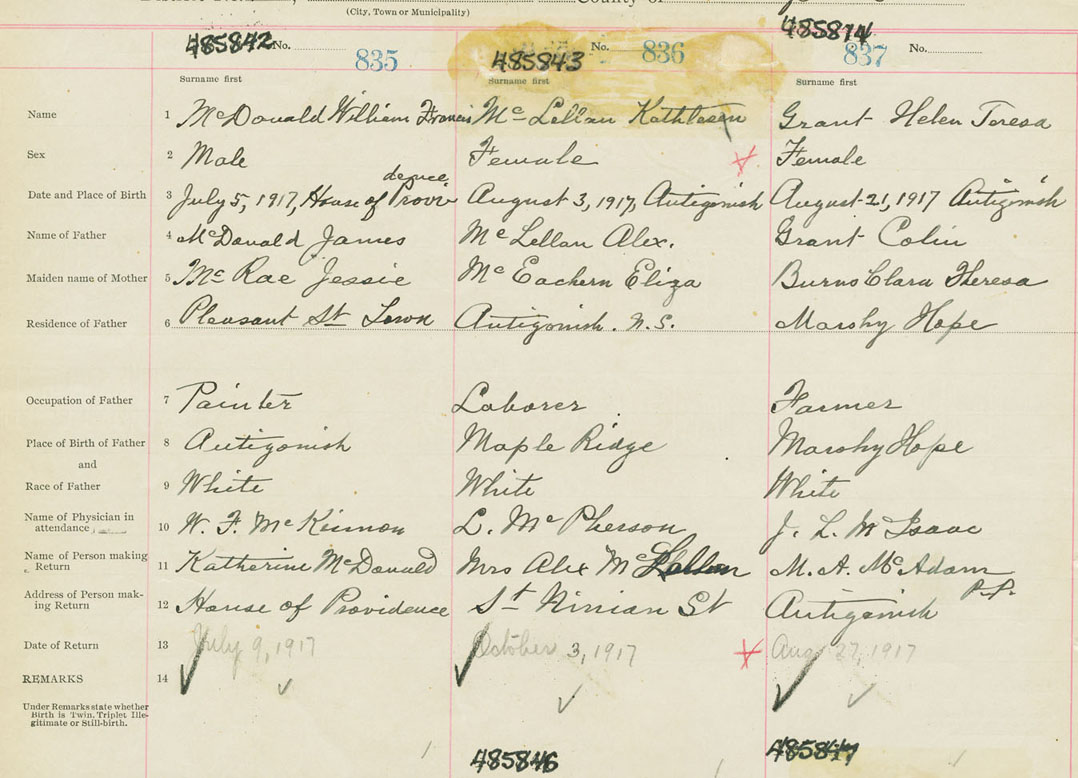 (City, Town or Municipality)
County of
485842 No. 835 485843 No. 836 485814 837 No.
Surname first Surname first Surname first
Name 1 McDonald William Francis McLellan Kathleen Grant Helen Teresa
Sex 2 Male Female Female
dence
Date and Place of Birth 3 July 5, 1917, House of Provi August 3, 1917, Antigonish August 21, 1917 Antigonish
Name of Father 4 McDonald James McLellan Alex. Grant Colin
Maiden name of Mother 5 McRae Jessie McEachern Eliza Burns Clara Theresa
Residence of Father 6 Pleasant St Town Antigonish. N.S. Marshy Hope
Occupation of Father 7 Painter Laborer Farmer
Place of Birth of Father 8 Antigonish Maple Ridge Marshy Hope
and
Race of Father 9 White White White
Name of Physician in
attendance 10 W. F. McKinnon L. McPherson J. L. McIsaac
Name of Person making
Return 11 Katherine McDonald Mrs Alex McLellan M. A. McAdam
P.P.
Address of Person mak-
ing Return 12 House of Providence St Ninian St Antigonish
Date of Return 13 July 9, 1917 October 3, 1917 Aug 27, 1917
REMARKS 14
Under Remarks state whether
Birth is Twin, Triplet Ille-
gitimate or Still-birth.
485846